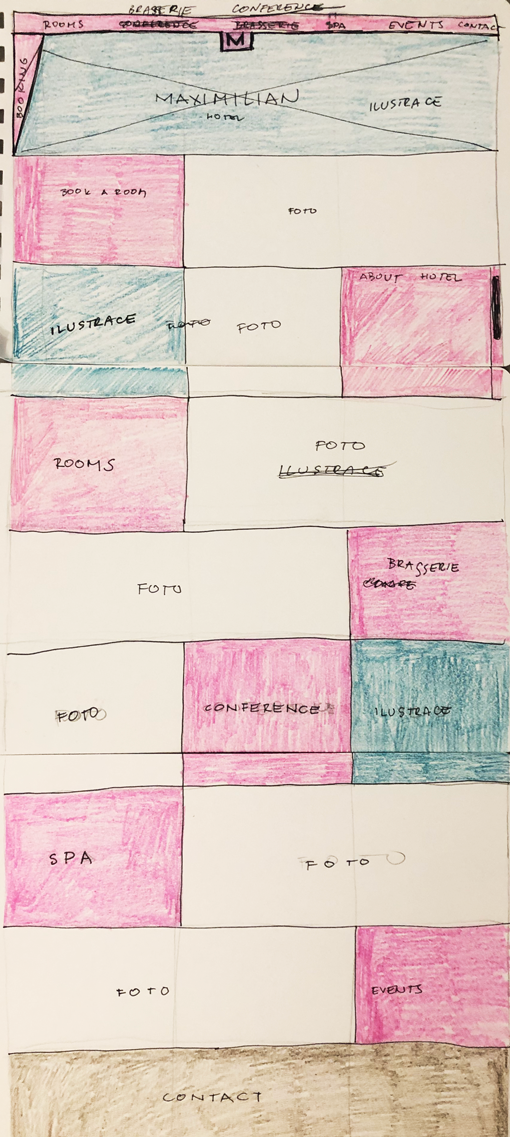 BRASSERIE CONFERENCE
ROOMS CONFERENCE BRASSERIE SPA EVENTS CONTAC
M
BOOKING
MAXIMILIAN
HOTEL
ILUSTRACE
BOOK A ROOM
FOTO
ILUSTRACE
FOTO
FOTO
ABOUT HOTEL
ROOMS
FOTO
ILUSTRACE
FOTO
BRASSERIE
FOTO
CONFERENCE
ILUSTRACE
SPA
FOTO
FOTO
EVENTS
CONTACT